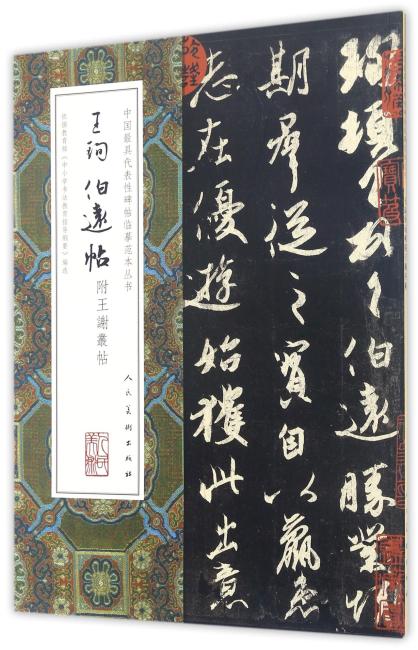 珣頓首頓首伯遠勝業情
期群從之寶自以羸患
志在優遊始獲此出意
中国最具代表性碑帖临摹范本丛书
王珣 伯遠帖
附王謝叢帖
人民美術出版社
依据教育部《中小学书法教育指导纲要》编选